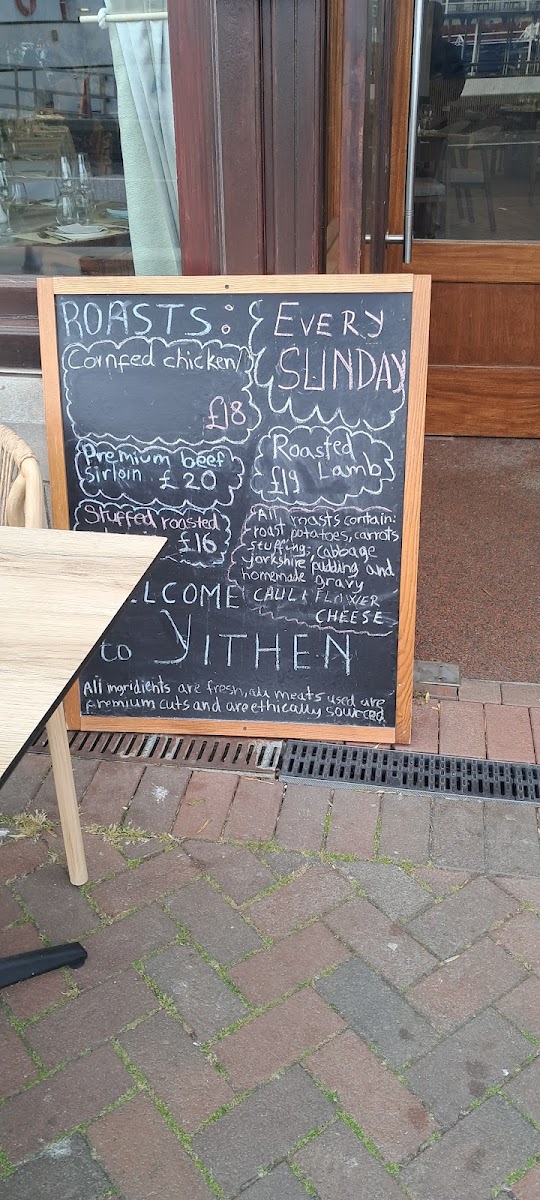 ROASTS:
Cornfed chicken
£18
EVERY
SUNDAY
Premium beef
sirloin £20
Roasted
Lamb
£19
Stuffed roasted
£16
All roasts contain:
roast potatoes, carrots
stuffing, cabbage
yorkshire pudding and
homemade gravy
CAULIFLOWER
CHEESE
LCOME
to YITHEN
All ingridients are fresh, all meats used are
premium cuts and are ethically sourced